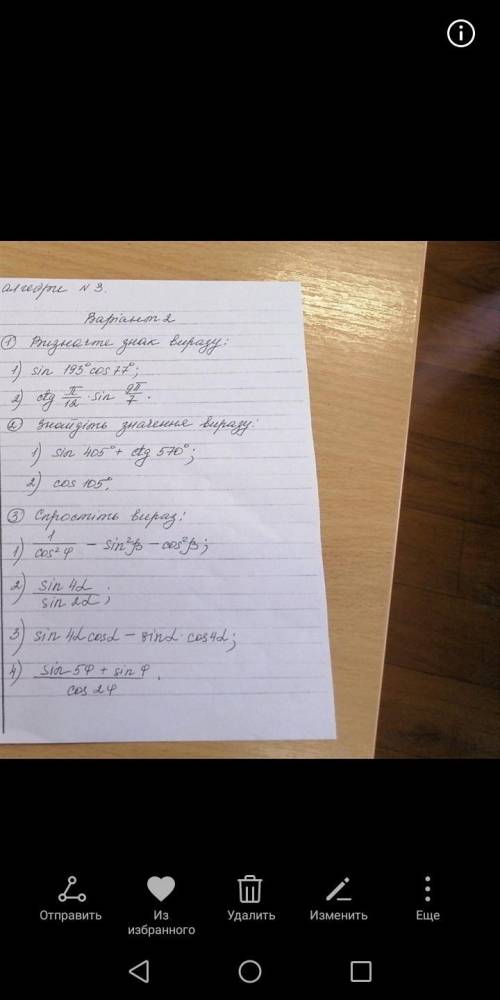 алгебри №3.
Варіант 2
① Визначте знак виразу:
1) sin 193° cos 77°;
2) ctg π/12 · sin 9π/7.
② Знайдіть значення виразу:
1) sin 405° + ctg 570°;
2) cos 105°.
③ Спростіть вираз:
1) 1/cos²φ − sin²β − cos²β;
2) sin 4α / sin 2α;
3) sin 4α cos α − sin α · cos 4α;
4) (sin 5φ + sin φ) / cos 2φ.
Отправить
Из избранного
Удалить
Изменить
Еще